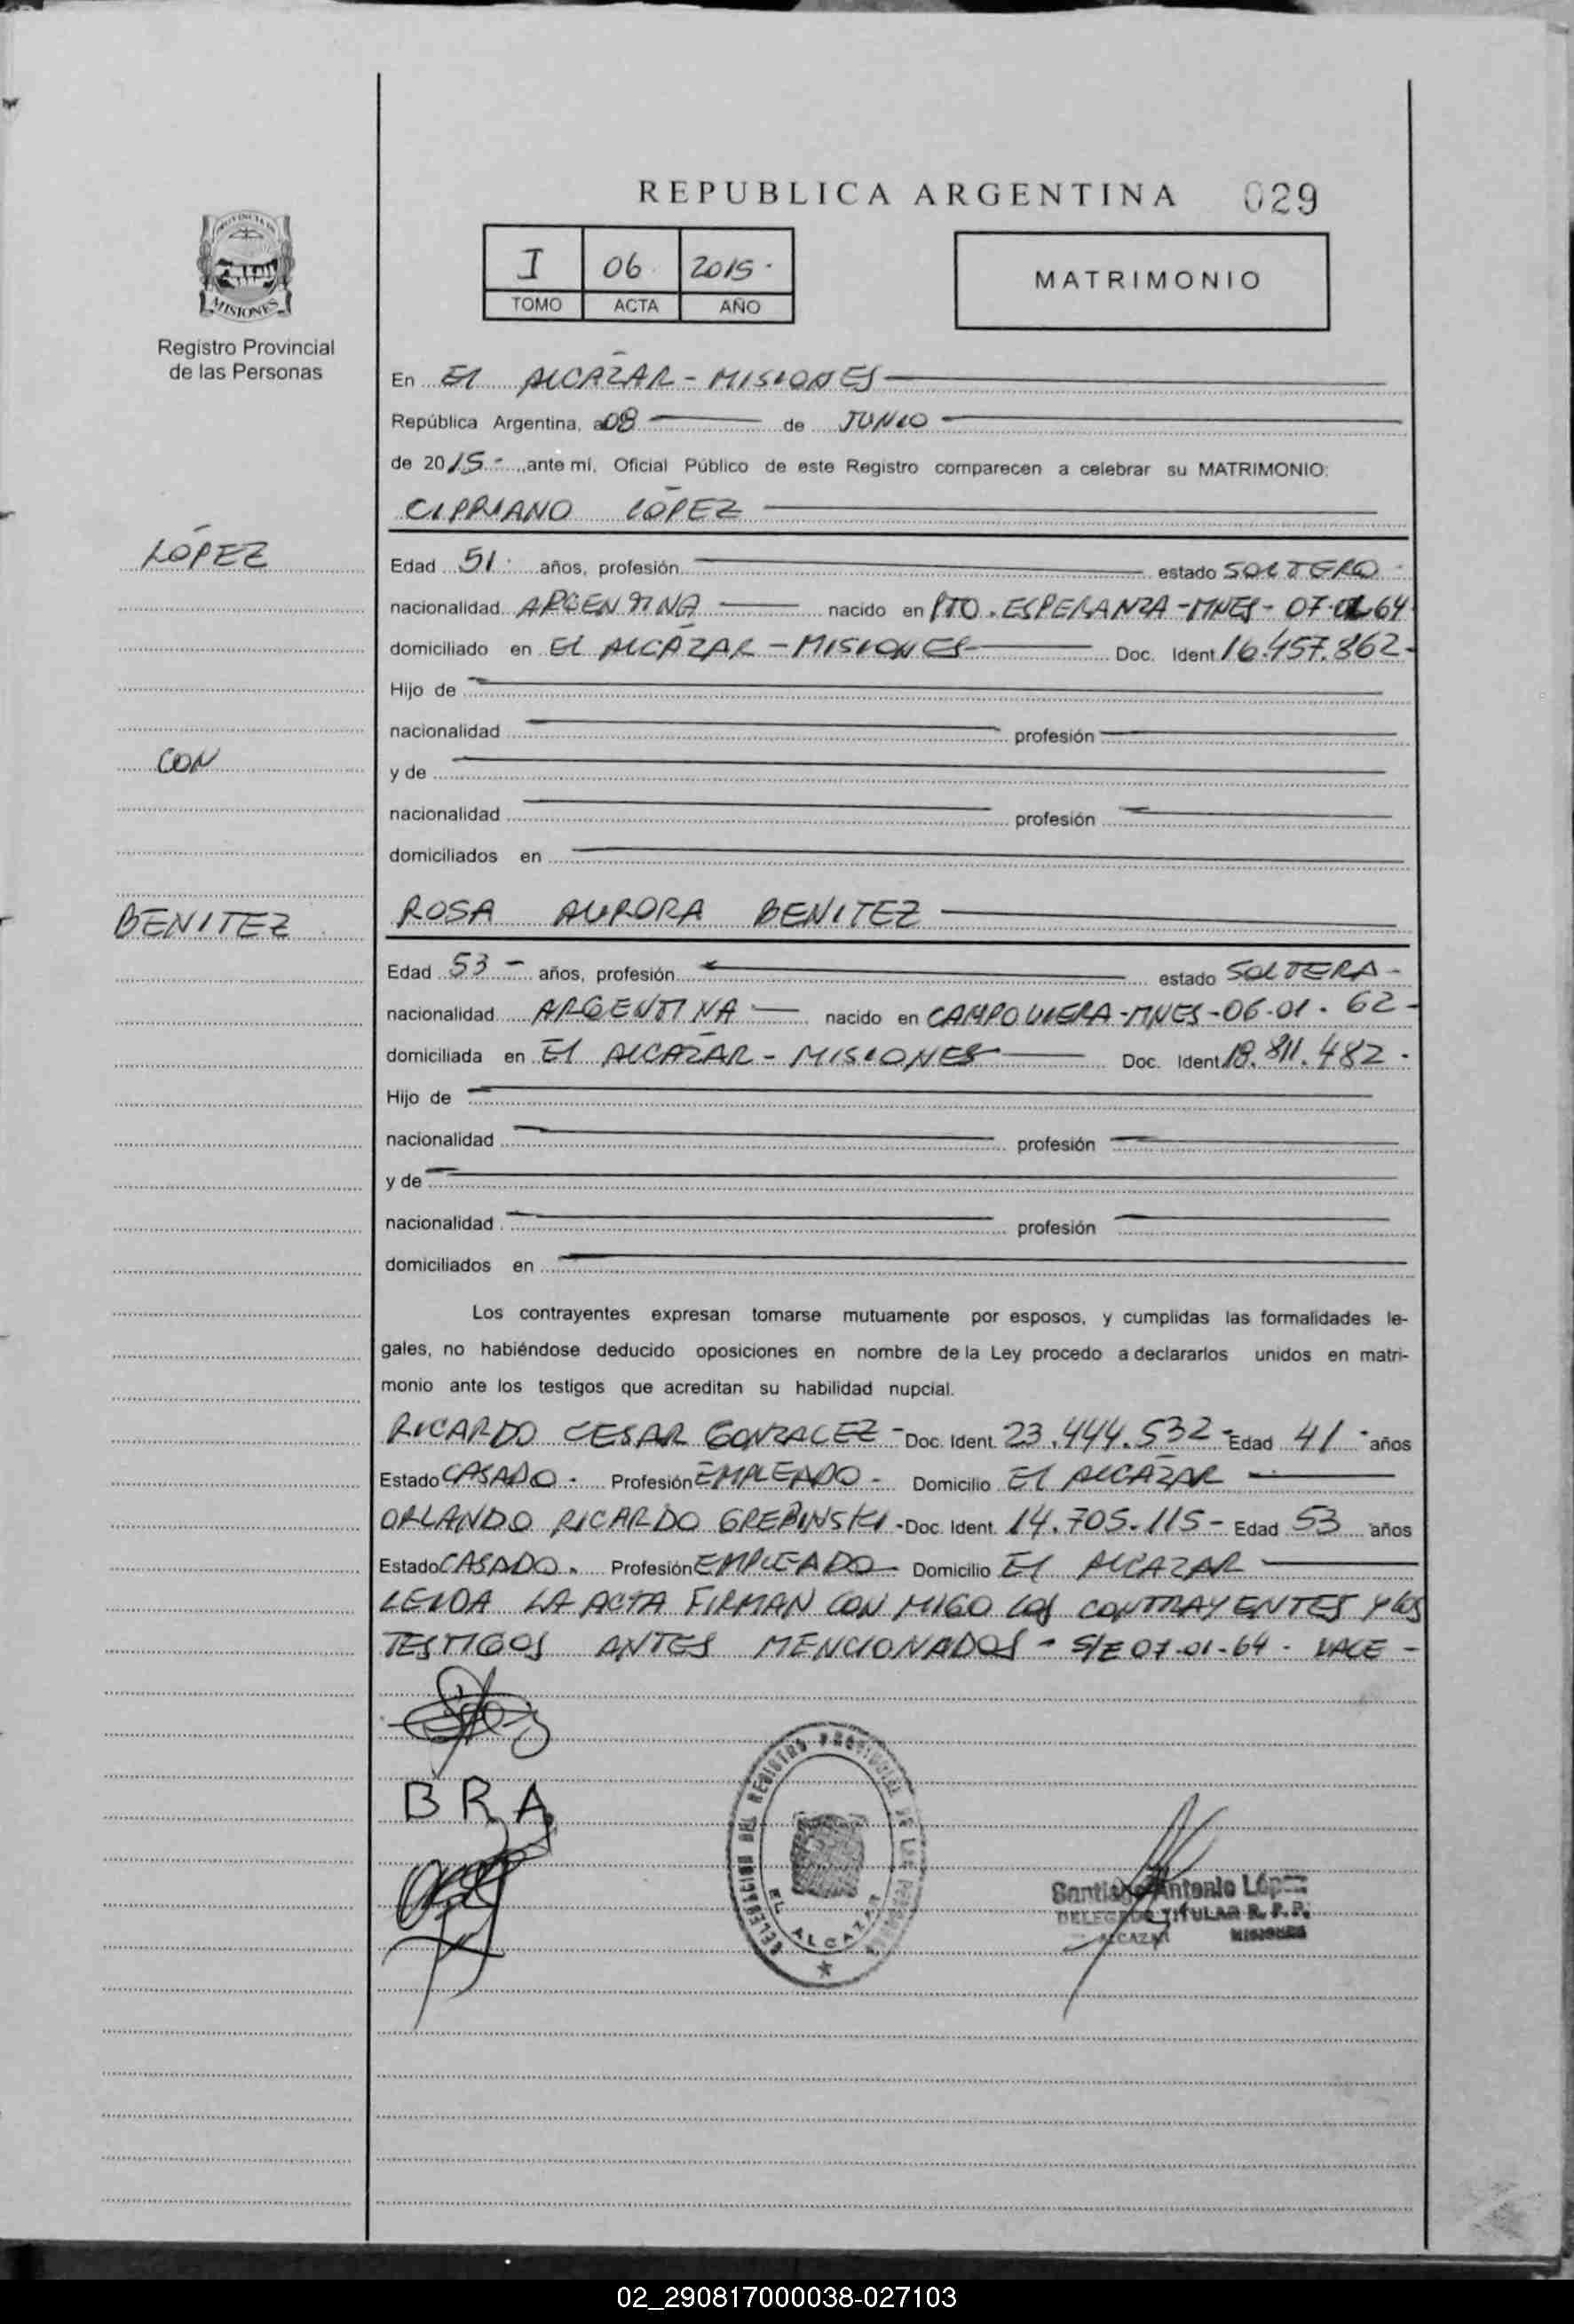 REPUBLICA ARGENTINA 029
PROVINCIA DE
MISIONES
Registro Provincial
de las Personas
I 06 2015.
TOMO ACTA AÑO
MATRIMONIO
En El ALCÁZAR - MISIONES
República Argentina, a 08 de JUNIO
de 2015 - ante mí, Oficial Público de este Registro comparecen a celebrar su MATRIMONIO:
CIPRIANO LÓPEZ
LÓPEZ
Edad 51 años, profesión estado SOLTERO
nacionalidad ARGENTINA nacido en PTO. ESPERANZA - MNES - 07-01-64
domiciliado en EL ALCÁZAR - MISIONES Doc. Ident 16.457.862 -
Hijo de
nacionalidad profesión
CON
y de
nacionalidad profesión
domiciliados en
BENITEZ
ROSA AURORA BENITEZ
Edad 53 - años, profesión estado SOLTERA -
nacionalidad ARGENTINA nacido en CAMPO VIERA - MNES - 06-01-62 -
domiciliada en El ALCÁZAR - MISIONES Doc. Ident 18.811.482 -
Hijo de
nacionalidad profesión
y de
nacionalidad profesión
domiciliados en
Los contrayentes expresan tomarse mutuamente por esposos, y cumplidas las formalidades le-
gales, no habiéndose deducido oposiciones en nombre de la Ley procedo a declararlos unidos en matri-
monio ante los testigos que acreditan su habilidad nupcial.
RICARDO CESAR GONZALEZ - Doc. Ident. 23.444.532 - Edad 41 - años
Estado CASADO - Profesión EMPLEADO - Domicilio El ALCÁZAR
ORLANDO RICARDO GREBINSKI - Doc. Ident. 14.705.115 - Edad 53 años
Estado CASADO. Profesión EMPLEADO Domicilio El ALCAZAR
LEIDA LA ACTA FIRMAN CON MIGO LOS CONTRAYENTES Y LOS
TESTIGOS ANTES MENCIONADOS - S/E 07-01-64 - VALE -
B R A
DELEGACION DEL REGISTRO PROVINCIAL DE LAS PERSONAS
EL ALCAZAR
Santiago Antonio López
DELEGADO TITULAR R. P. P.
ALCAZAR MISIONES
02_290817000038-027103